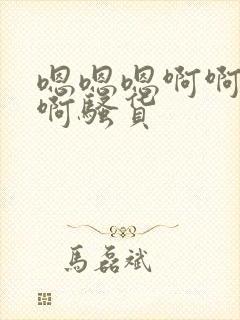 嗯嗯嗯啊啊
啊骚货
馬磊斌